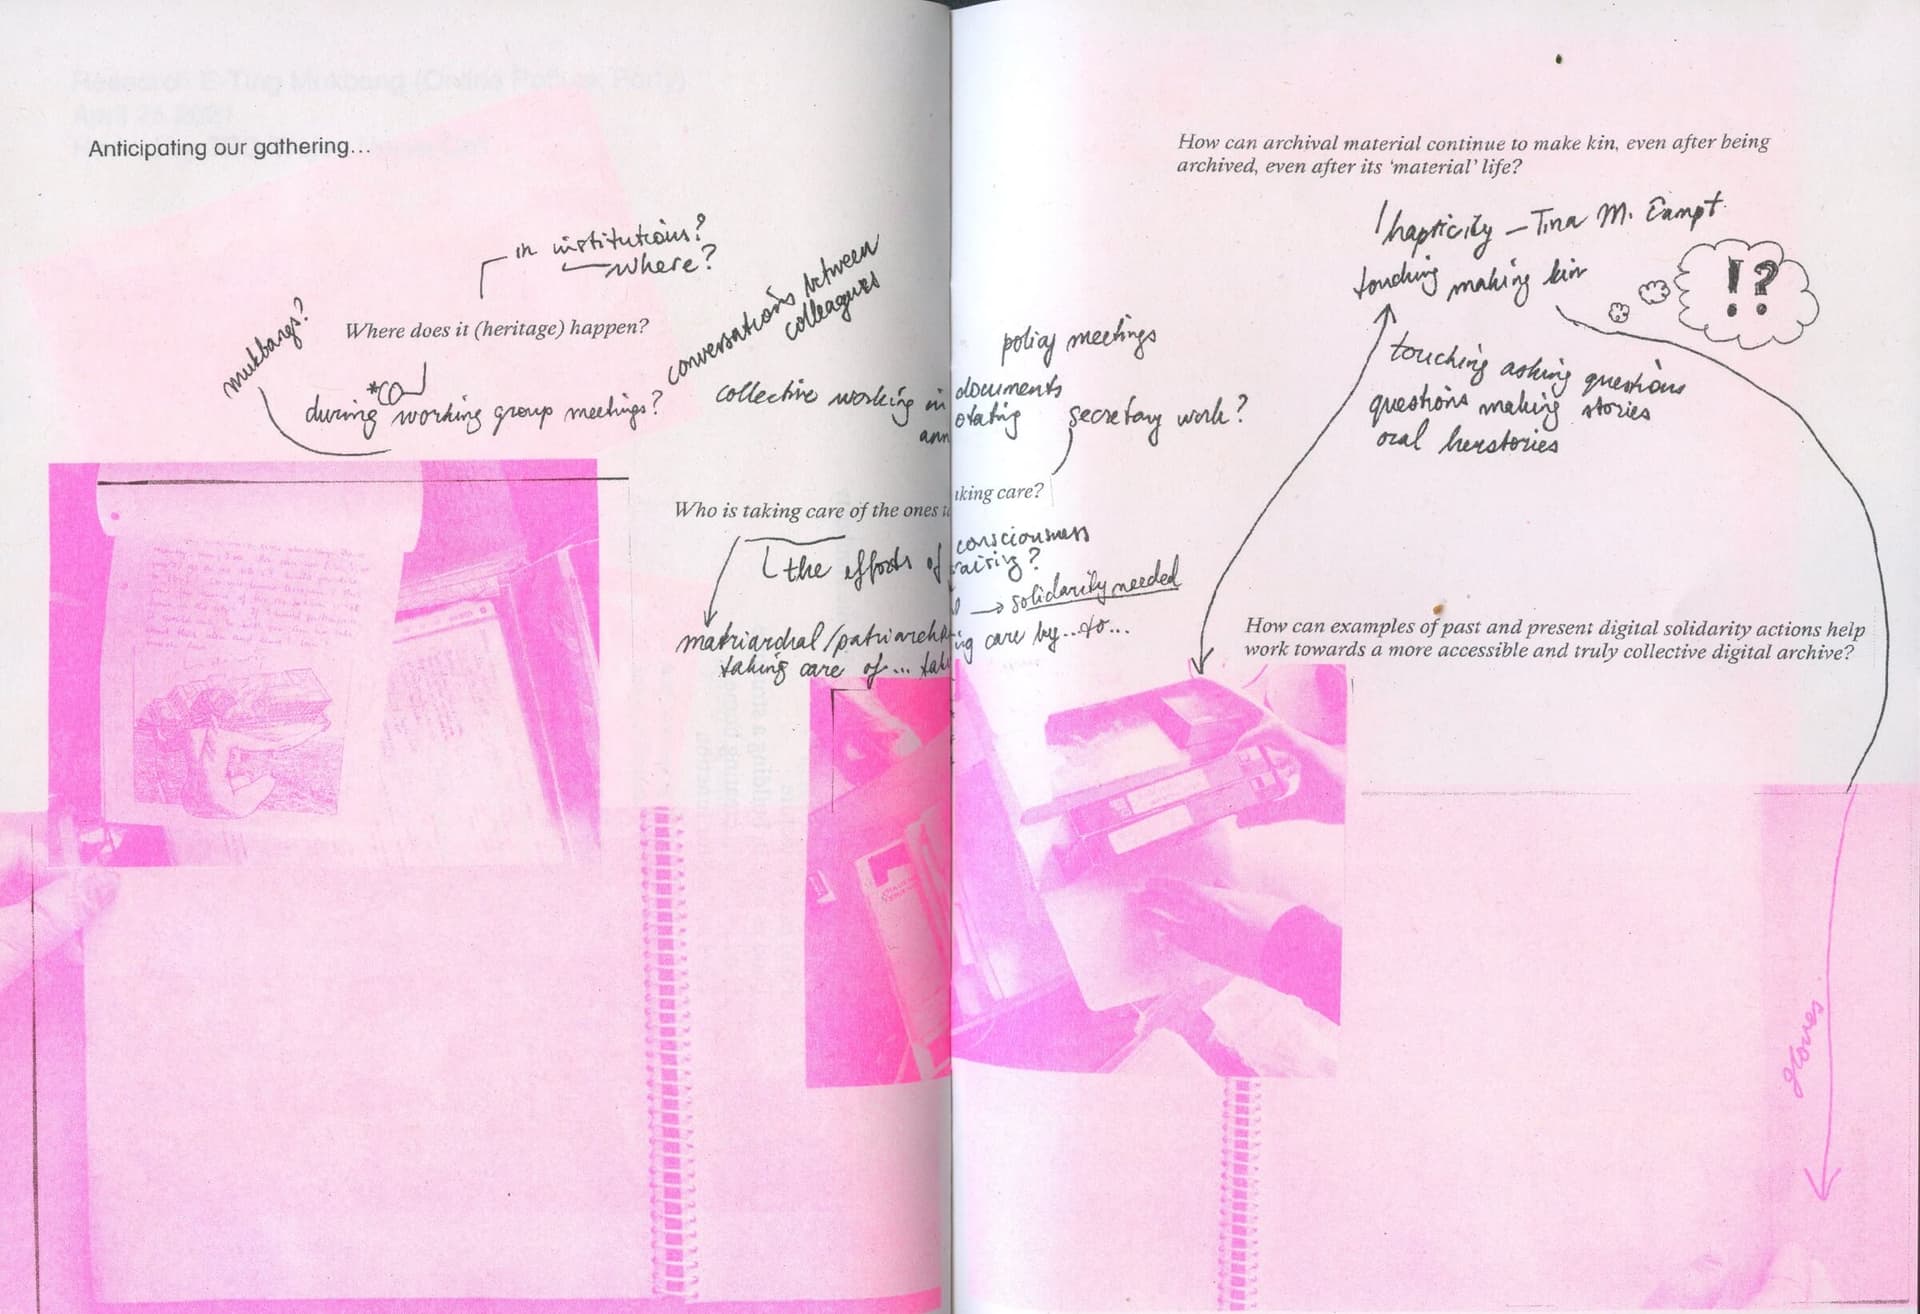 Anticipating our gathering...
in institutions?
where?
mukbangs?
Where does it (heritage) happen?
conversations between
colleagues
during working group meetings?
policy meetings
collective working in documents
annotating
secretary work?
Who is taking care of the ones taking care?
the efforts of consciousness
raising?
→ solidarity needed
taking care of... taking care by...to...
How can archival material continue to make kin, even after being
archived, even after its ‘material’ life?
hapticity – Tina M. Campt
touching making kin
!?
touching asking questions
questions making stories
oral herstories
How can examples of past and present digital solidarity actions help
work towards a more accessible and truly collective digital archive?
gloves